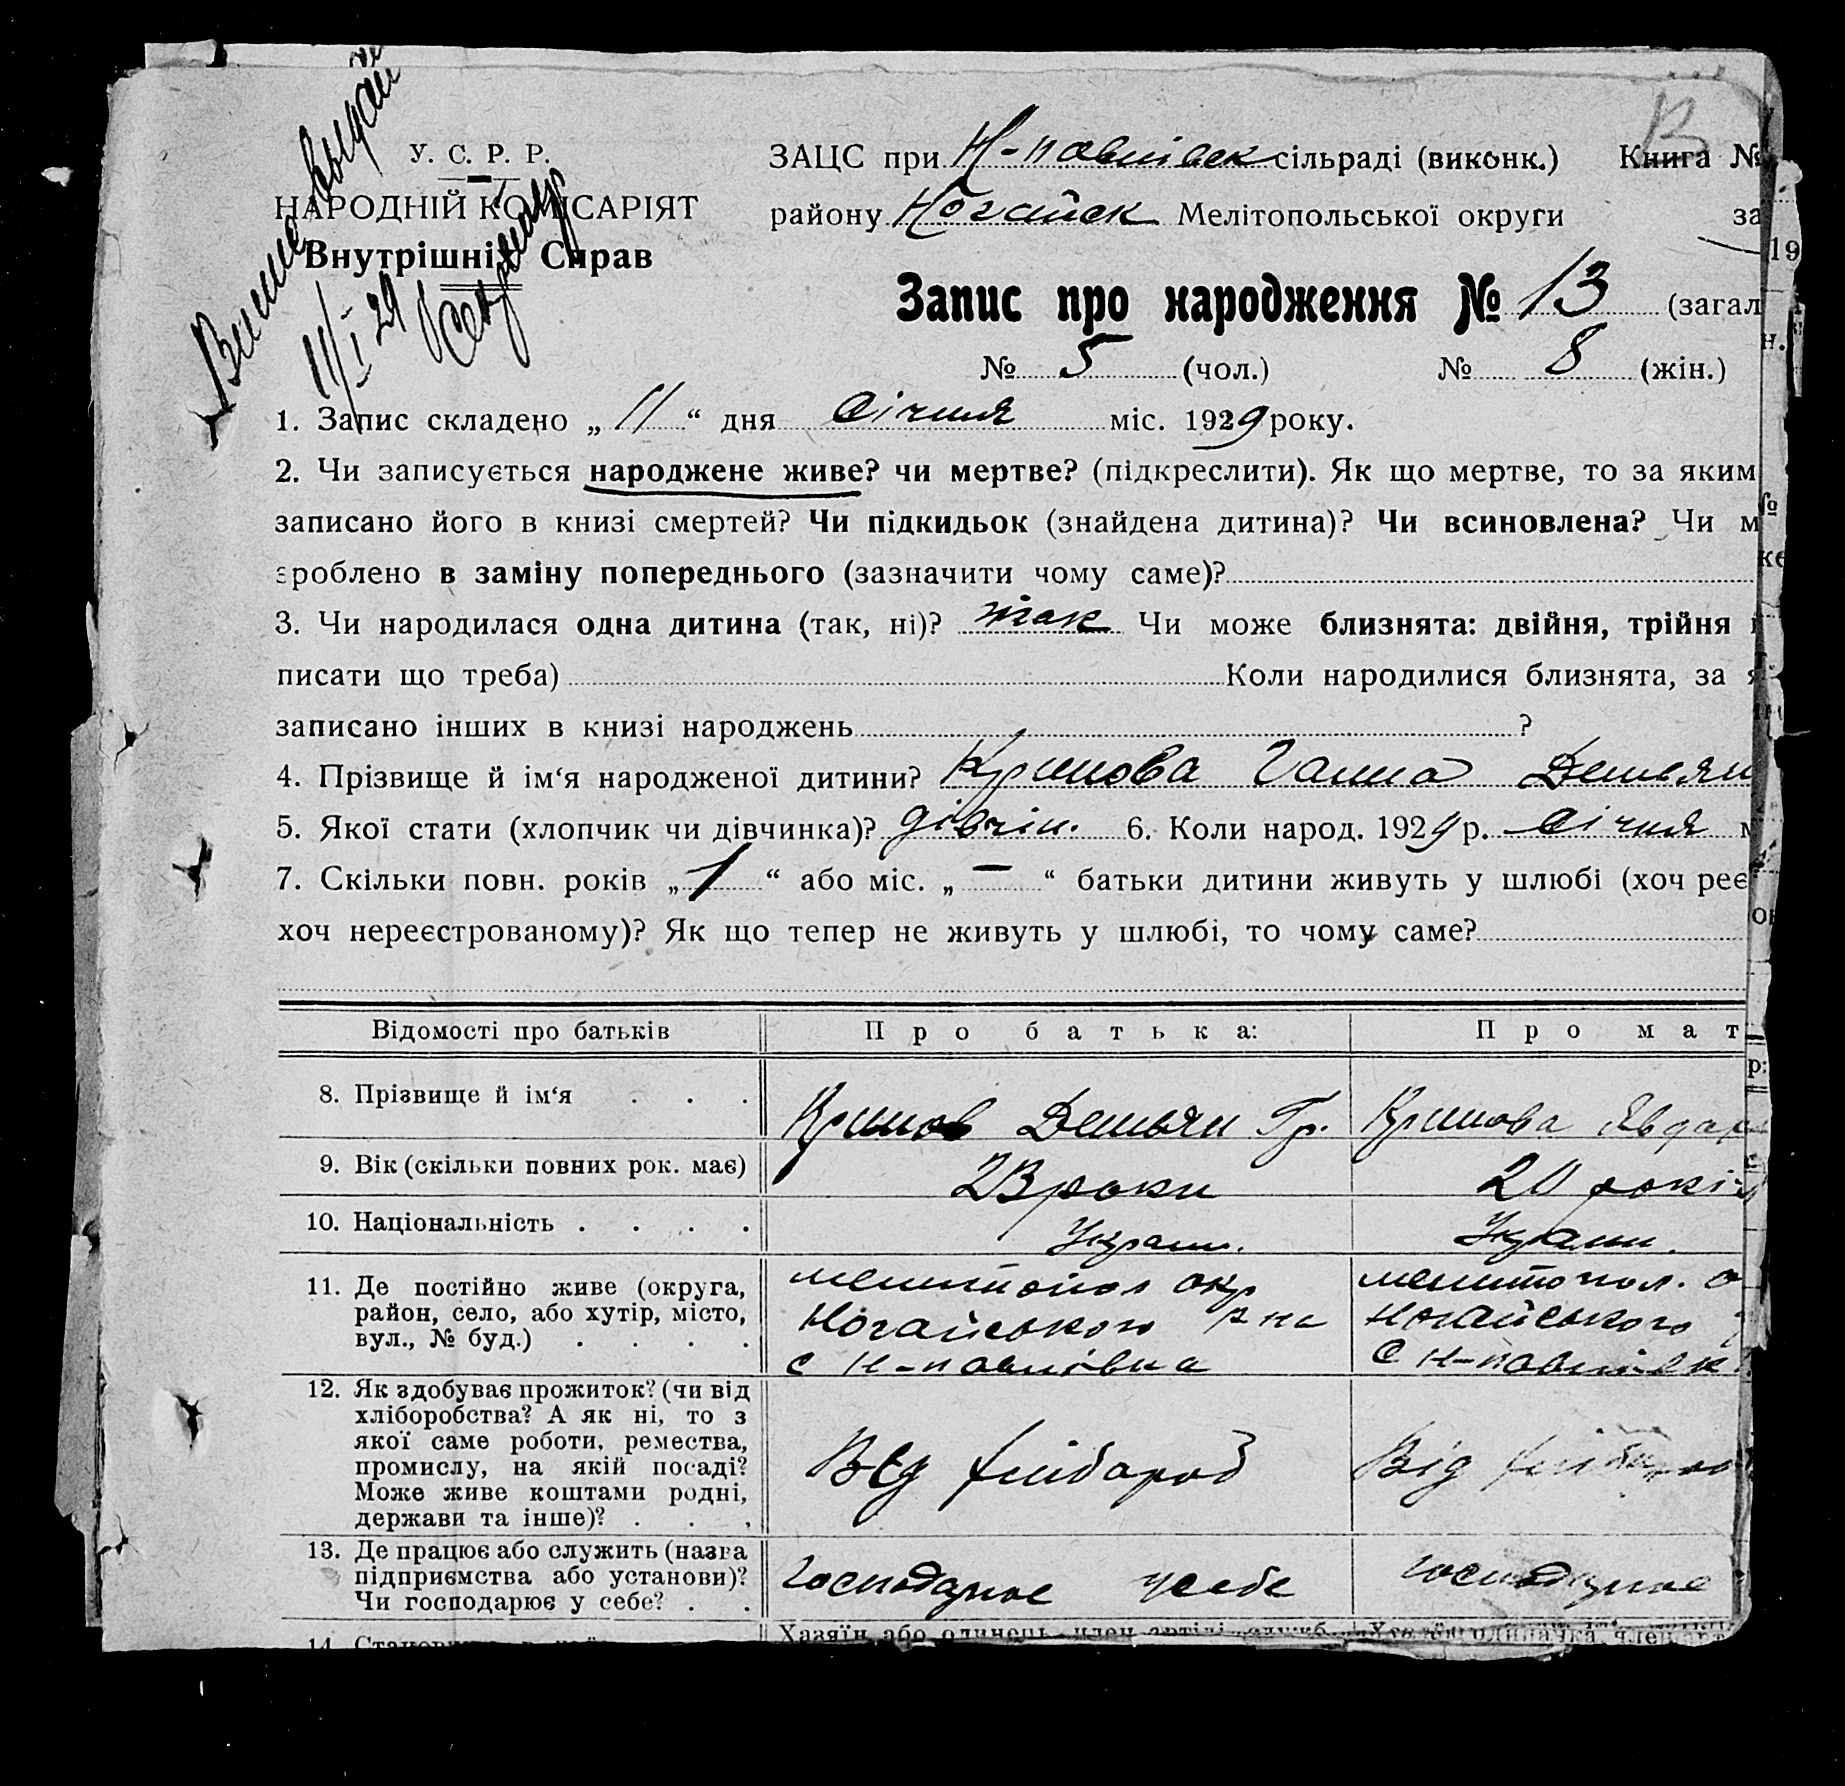 У. С. Р. Р.
НАРОДНІЙ КОМІСАРІЯТ
Внутрішніх Справ
11/I 29
ЗАЦС при Н-павлівск сільраді (виконк.) Книга №
району Ногайск Мелітопольської округи за
19
Запис про народження № 13 (загал
№ 5 (чол.) № 8 (жін.)
1. Запис складено „ 11 “ дня Січня міс. 1929 року.
2. Чи записується народжене живе? чи мертве? (підкреслити). Як що мертве, то за яким
записано його в книзі смертей? Чи підкидьок (знайдена дитина)? Чи всиновлена? Чи м
зроблено в заміну попереднього (зазначити чому саме)?
3. Чи народилася одна дитина (так, ні)? так Чи може близнята: двійня, трійня
писати що треба) Коли народилися близнята, за я
записано інших в книзі народжень ?
4. Прізвище й ім‘я народженої дитини? Кримова Ганна Демьян
5. Якої стати (хлопчик чи дівчинка)? дівчін. 6. Коли народ. 1929 р. Січня м
7. Скільки повн. років „ 1 “ або міс. „ — “ батьки дитини живуть у шлюбі (хоч реє
хоч нереєстрованому)? Як що тепер не живуть у шлюбі, то чому саме?
Відомості про батьків Про батька: Про мат
8. Прізвище й ім‘я . . . Кримов Демьян Гр. Кримова Явдок
9. Вік (скільки повних рок. має) 23 роки 20 років
10. Національність . . . . Украин. Украин.
11. Де постійно живе (округа,
район, село, або хутір, місто,
вул., № буд.) . . . .
мелитопол окр
Ногайського р на
с Н-павлівка
мелитопол. о
Ногайського
С Н-павлівк
12. Як здобуває прожиток? (чи від
хліборобства? А як ні, то з
якої саме роботи, ремества,
промислу, на якій посаді?
Може живе коштами родні,
держави та інше)? . . .
Від хлібароб
Від хлібароб
13. Де працює або служить (назва
підприємства або установи)?
Чи господарює у себе? . .
господарює у себе
господарює
14. Станов
Хазяїн або одинець, член артілі служб.
одиначка член арт